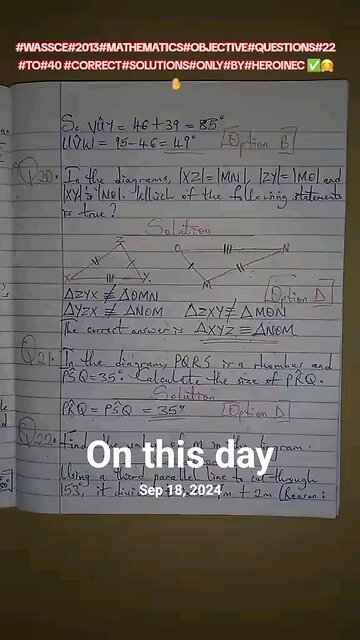 #WASSCE#2013#MATHEMATICS#OBJECTIVE#QUESTIONS#22
#TO#40 #CORRECT#SOLUTIONS#ONLY#BY#HEROINEC ✅🤗
✋
So VÛY = 46 + 39 = 85°
UV̂W = 95 - 46 = 49° Option B
Q20. In the diagrams, |XZ| = |MN|, |ZY| = |MO| and
|XY| = |NO|. Which of the following statements
is true?
Solution
Z O N
X Y M
ΔZYX ≢ ΔOMN Option D
ΔYZX ≢ ΔNOM ΔZXY ≢ ΔMON
The correct answer is ΔXYZ ≡ ΔNOM
Q21. In the diagram, PQRS is a rhombus and
PŜQ = 35°. Calculate the size of PR̂Q.
Solution
PR̂Q = PŜQ = 35° Option D
Q22. Find the value of m in the diagram.
On this day
Using a third parallel line to cut through
Sep 18, 2024
53°, it m + 2m (Reason: